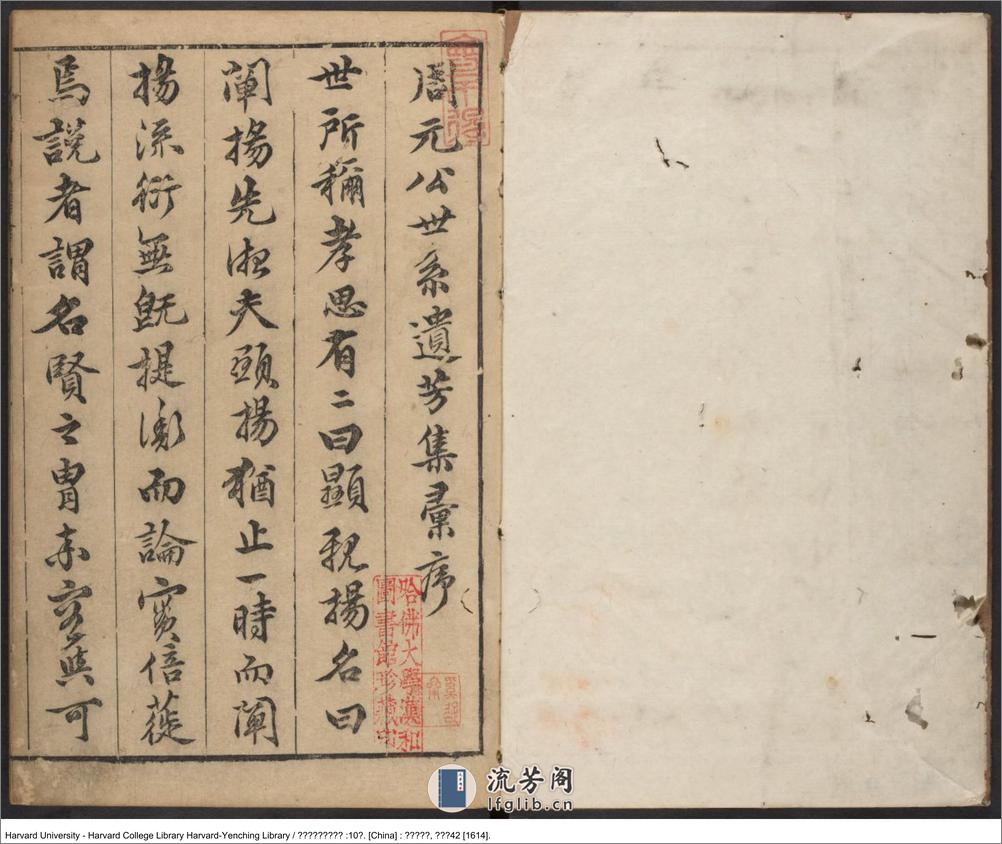 周元公世系遺芳集彙序
世所稱孝思有二曰顯親揚名曰
闡揚先淑夫顯揚猶止一時而闡
揚流衍無既提衡而論實倍蓰
焉說者謂名賢之冑未容輿可
哈佛大學漢和
圖書館珍藏印
流芳阁
lfglib.cn
Harvard University - Harvard College Library Harvard-Yenching Library / ????????? :10?. [China] : ?????, ???42 [1614].